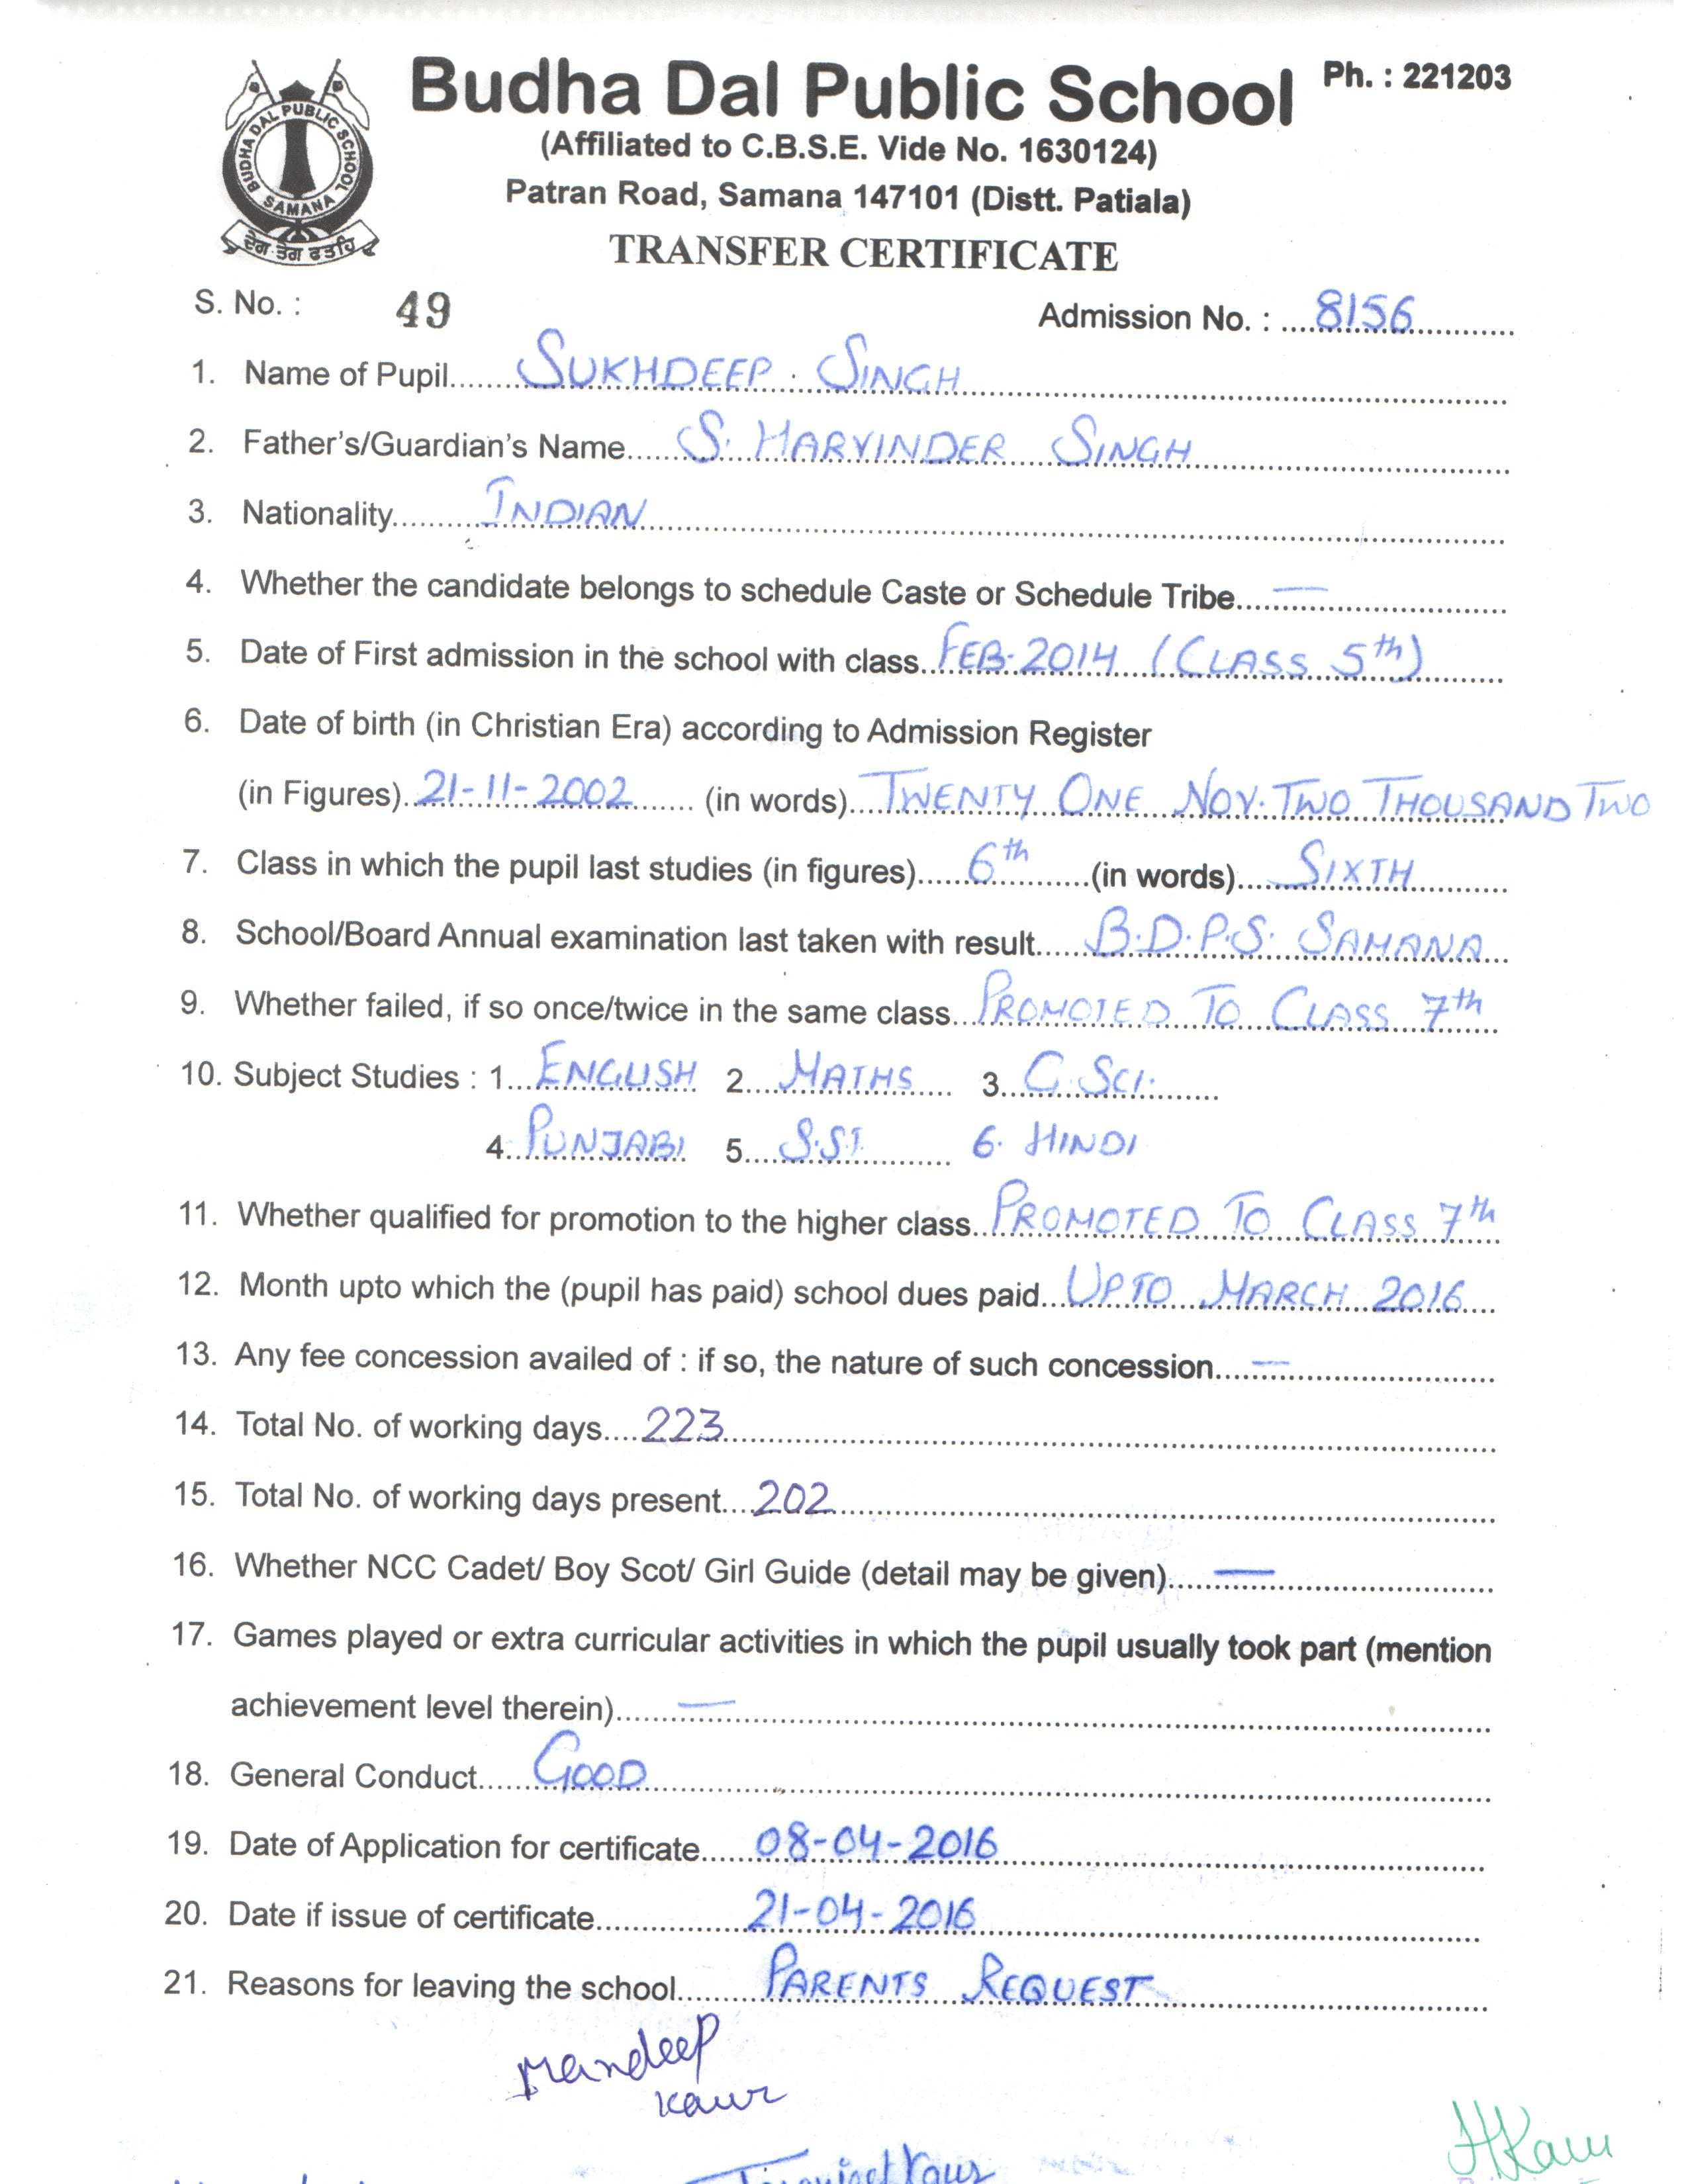 Budha Dal Public School Ph. : 221203
BUDHA DAL PUBLIC SCHOOL
SAMANA
ਦੇਗ ਤੇਗ ਫਤਹਿ
(Affiliated to C.B.S.E. Vide No. 1630124)
Patran Road, Samana 147101 (Distt. Patiala)
TRANSFER CERTIFICATE
S. No. : 49 Admission No. : 8156
1. Name of Pupil SUKHDEEP SINGH
2. Father's/Guardian's Name S. HARVINDER SINGH
3. Nationality INDIAN
4. Whether the candidate belongs to schedule Caste or Schedule Tribe —
5. Date of First admission in the school with class FEB-2014 (CLASS 5th)
6. Date of birth (in Christian Era) according to Admission Register
(in Figures) 21-11-2002 (in words) TWENTY ONE NOV. TWO THOUSAND TWO
7. Class in which the pupil last studies (in figures) 6th (in words) SIXTH
8. School/Board Annual examination last taken with result B.D.P.S. SAMANA
9. Whether failed, if so once/twice in the same class PROMOTED TO CLASS 7th
10. Subject Studies : 1. ENGLISH 2. MATHS 3. G. SCI.
4. PUNJABI 5. S.ST. 6. HINDI
11. Whether qualified for promotion to the higher class PROMOTED TO CLASS 7th
12. Month upto which the (pupil has paid) school dues paid UPTO MARCH 2016
13. Any fee concession availed of : if so, the nature of such concession —
14. Total No. of working days 223
15. Total No. of working days present 202
16. Whether NCC Cadet/ Boy Scot/ Girl Guide (detail may be given) —
17. Games played or extra curricular activities in which the pupil usually took part (mention
achievement level therein) —
18. General Conduct GOOD
19. Date of Application for certificate 08-04-2016
20. Date if issue of certificate 21-04-2016
21. Reasons for leaving the school PARENTS REQUEST
Mandeep
Kaur
Kaur